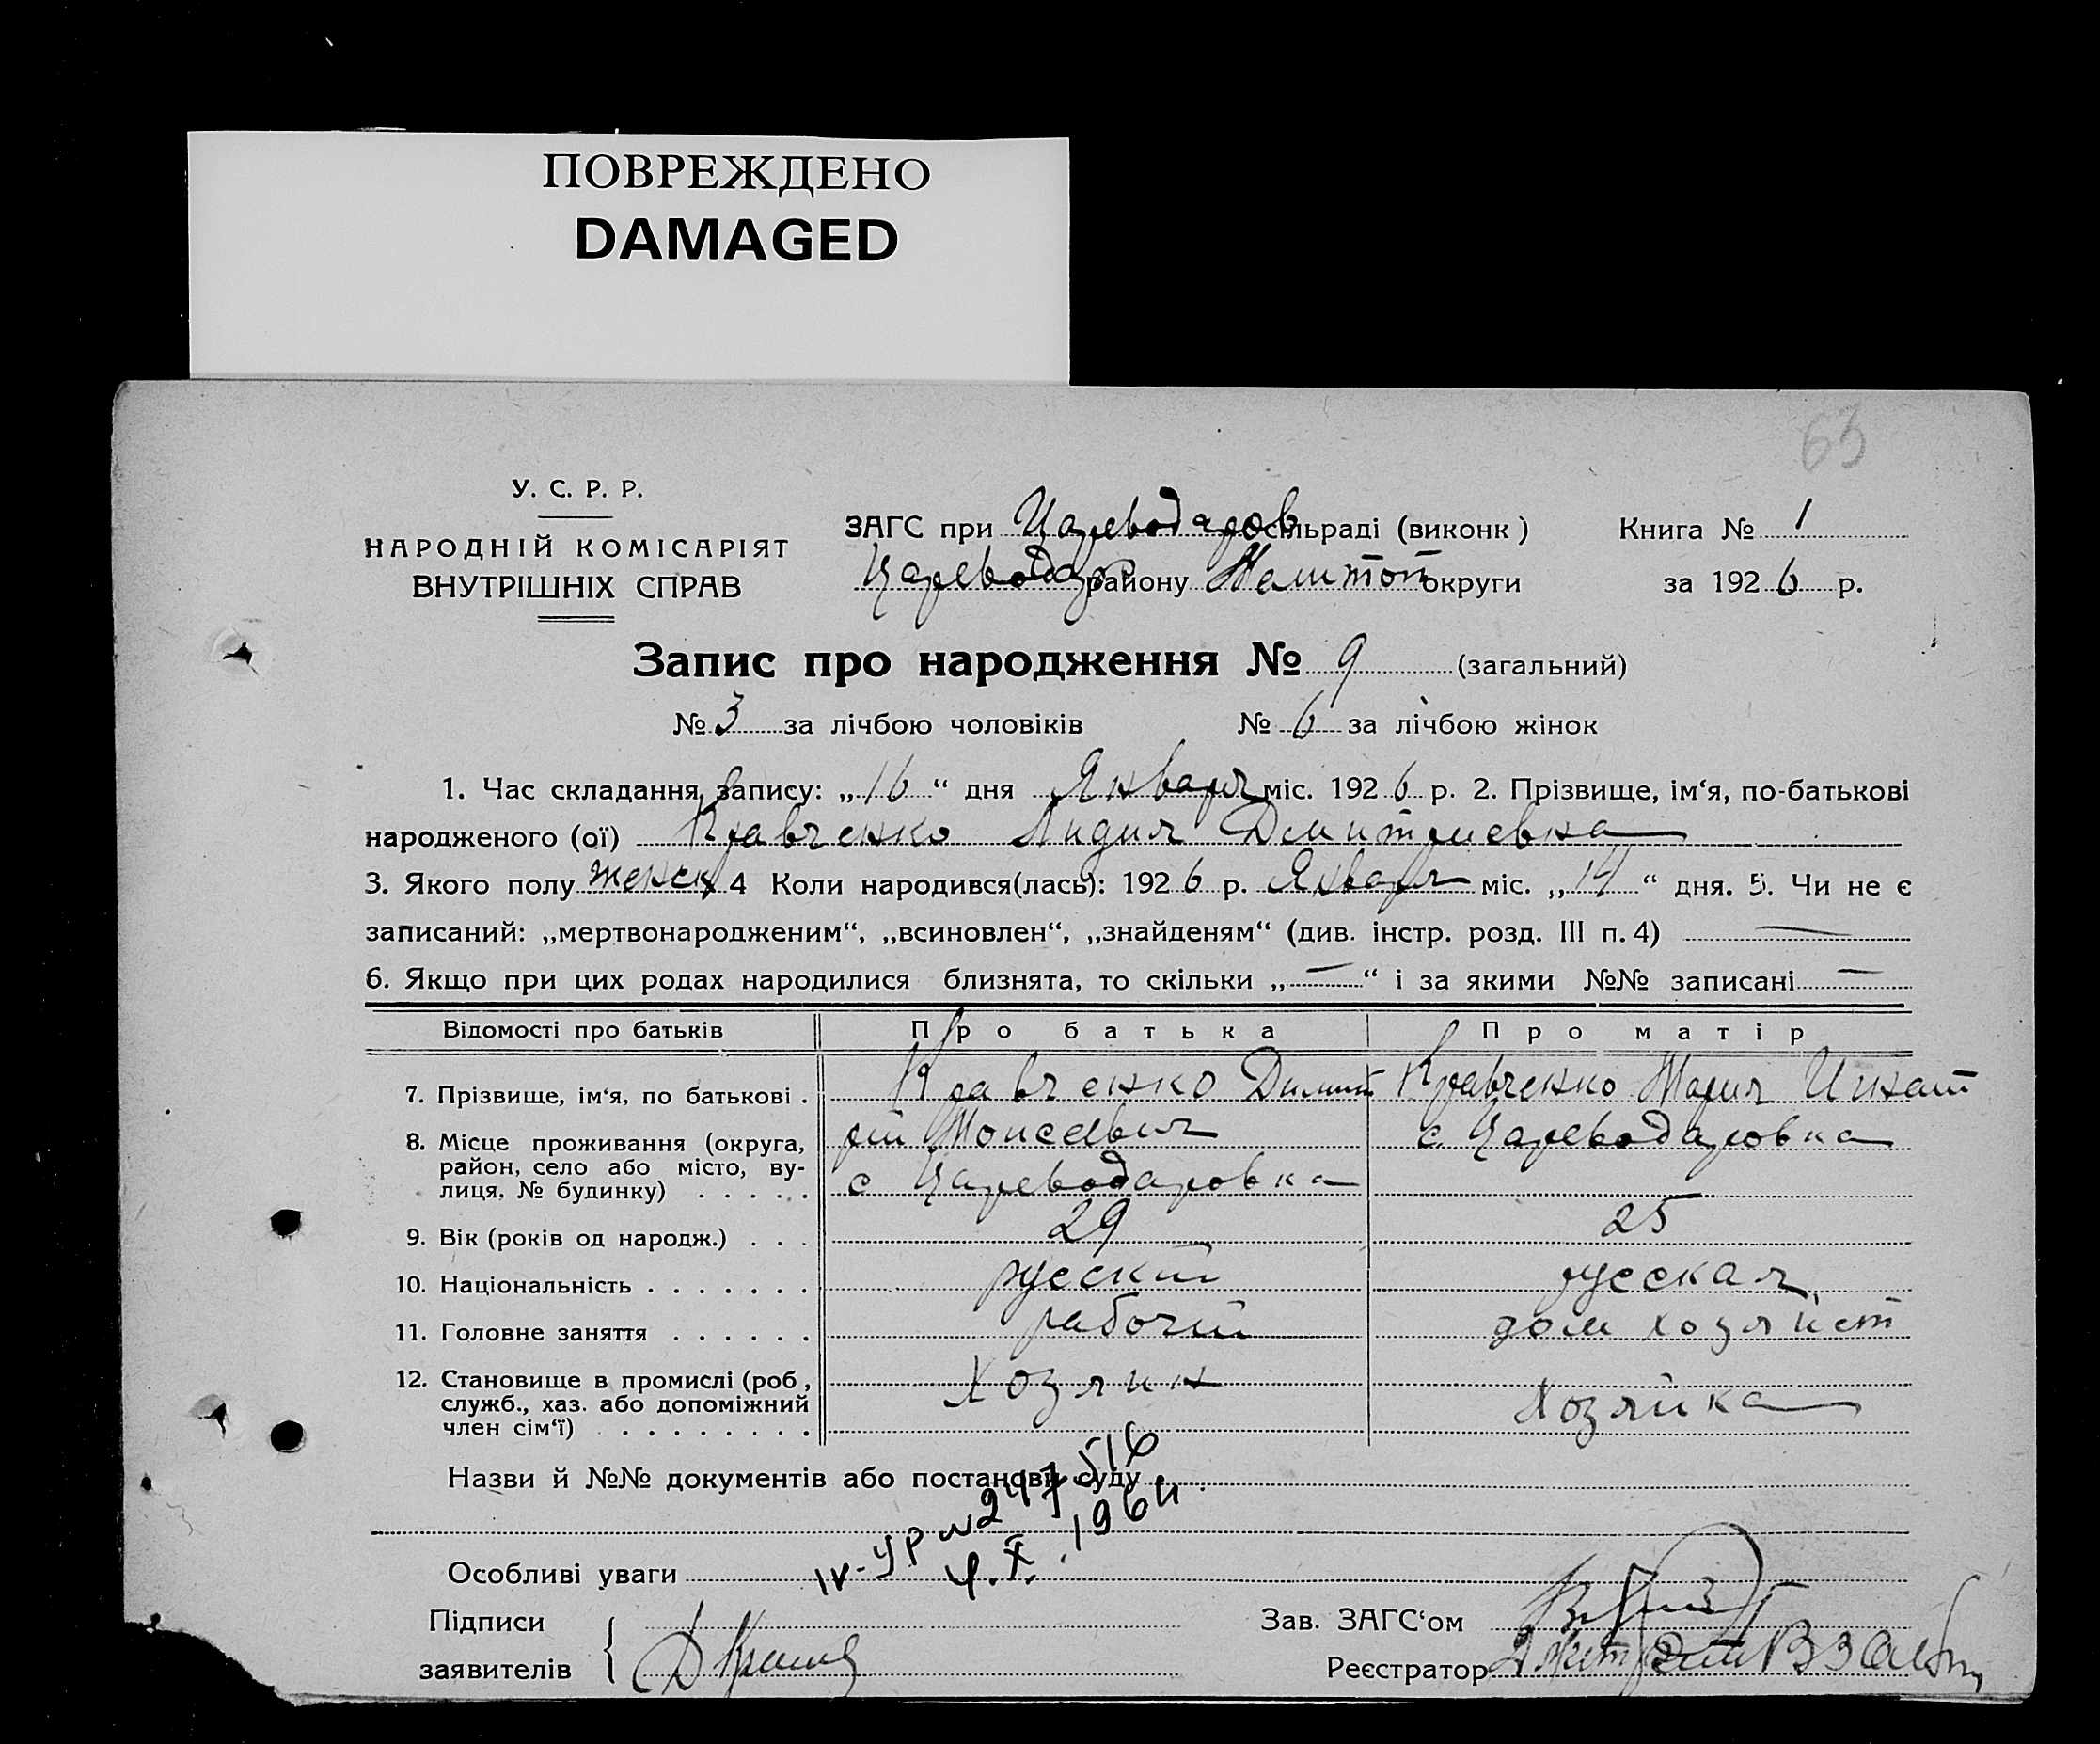 ПОВРЕЖДЕНО
DAMAGED
63
У. С. Р. Р.
НАРОДНІЙ КОМІСАРІЯТ
ВНУТРІШНІХ СПРАВ
ЗАГС при Цареводаров сільраді (виконк) Книга № 1
Цареводар району Мелитоп округи за 1926 р.
Запис про народження № 9 (загальний)
№ 3 за лічбою чоловіків № 6 за лічбою жінок
1. Час складання запису: „16“ дня Января міс. 1926 р. 2. Прізвище, ім‘я, по-батькові
народженого (ої) Кравченко Лидия Дмитриевна
3. Якого полу женск 4 Коли народився(лась): 1926 р. Января міс. „14“ дня. 5. Чи не є
записаний: „мертвонародженим“, „всиновлен“, „знайденям“ (див. інстр. розд. III п. 4) —
6. Якщо при цих родах народилися близнята, то скільки „—“ і за якими №№ записані —
Відомості про батьків Про батька Про матір
7. Прізвище, ім‘я, по батькові . Кравченко Димит Кравченко Мария Игнат
рий Моисеевич с. Цареводаровка
8. Місце проживання (округа,
район, село або місто, ву-
лиця, № будинку) . . . . . с Цареводаровка
9. Вік (років од народж.) . . . 29 25
10. Національність . . . . . . . русский русская
11. Головне заняття . . . . . . рабочий дом хозяйст
12. Становище в промислі (роб., Хозяин Хозяйка
служб., хаз. або допоміжний
член сім‘ї) . . . . . . . . .
Назви й №№ документів або постанови суду
IV-УР № 247516
4.X.1964
Особливі уваги
Підписи Зав. ЗАГС‘ом
заявителів Реєстратор